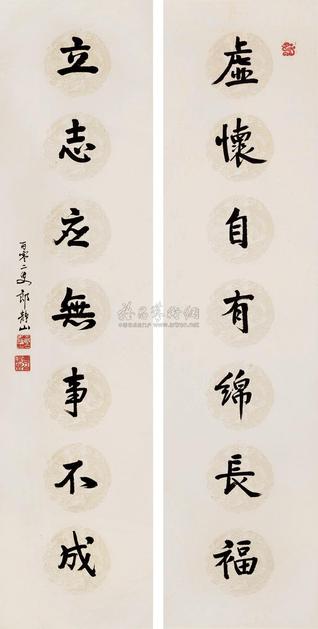 虛懷自有綿長福
立志应無事不成
百零二叟郎靜山